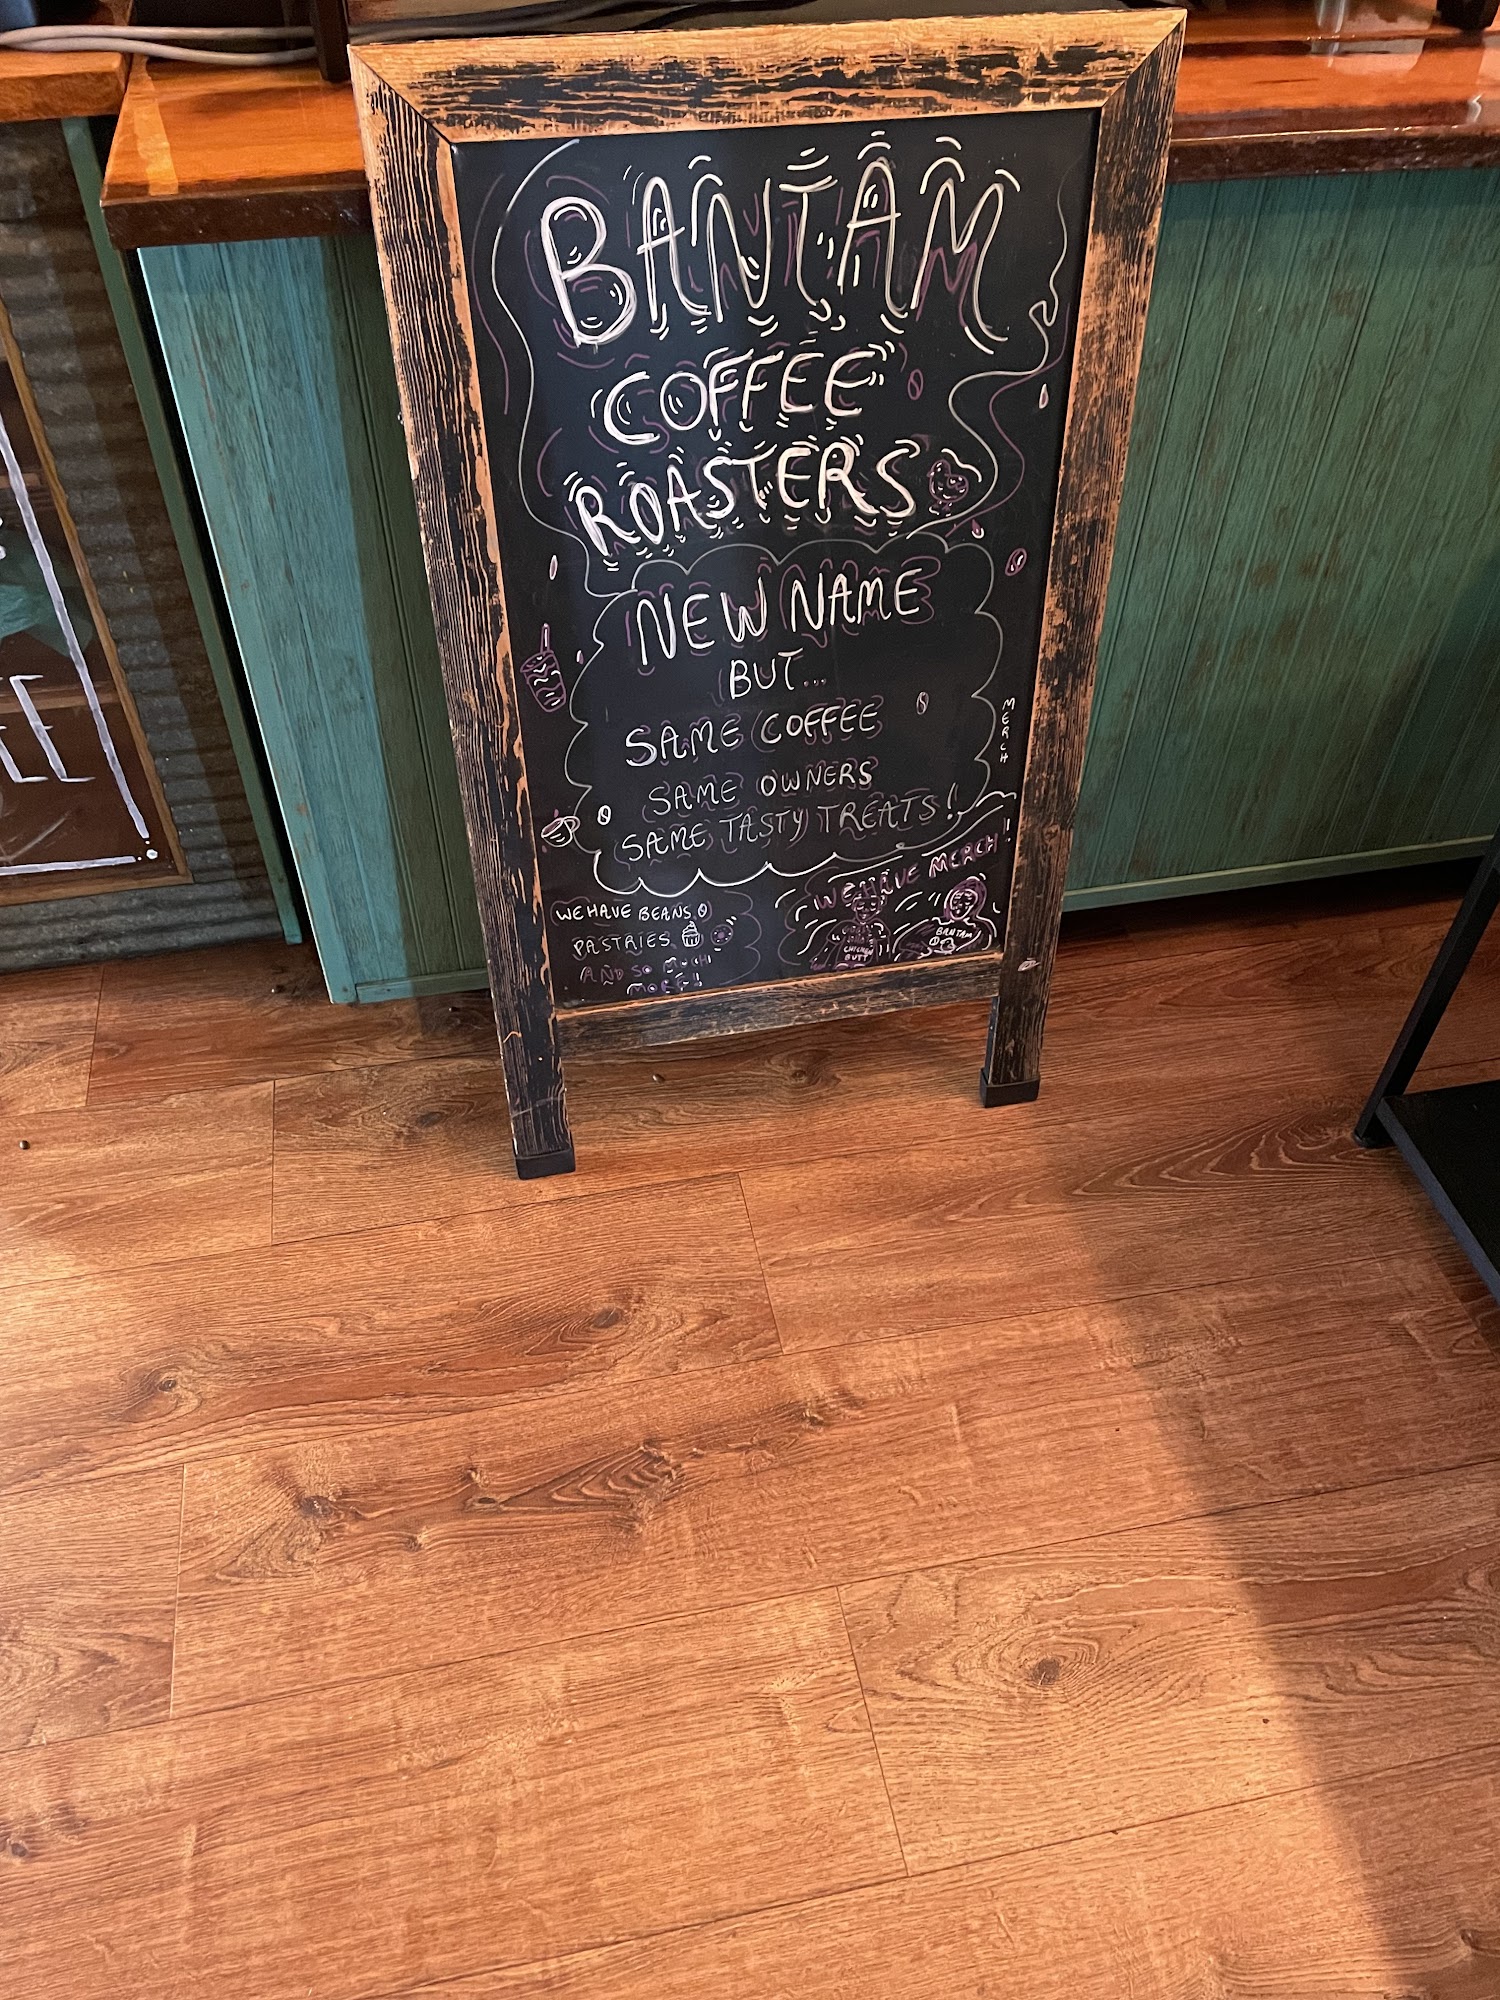 BANTAM
COFFEE
ROASTERS
NEW NAME
BUT...
SAME COFFEE
SAME OWNERS
SAME TASTY TREATS!
MERCH
WE HAVE BEANS
PASTRIES
AND SO MUCH
MORE!!
WE HAVE MERCH!
CHICKEN
BUTT
BANTAM
EE